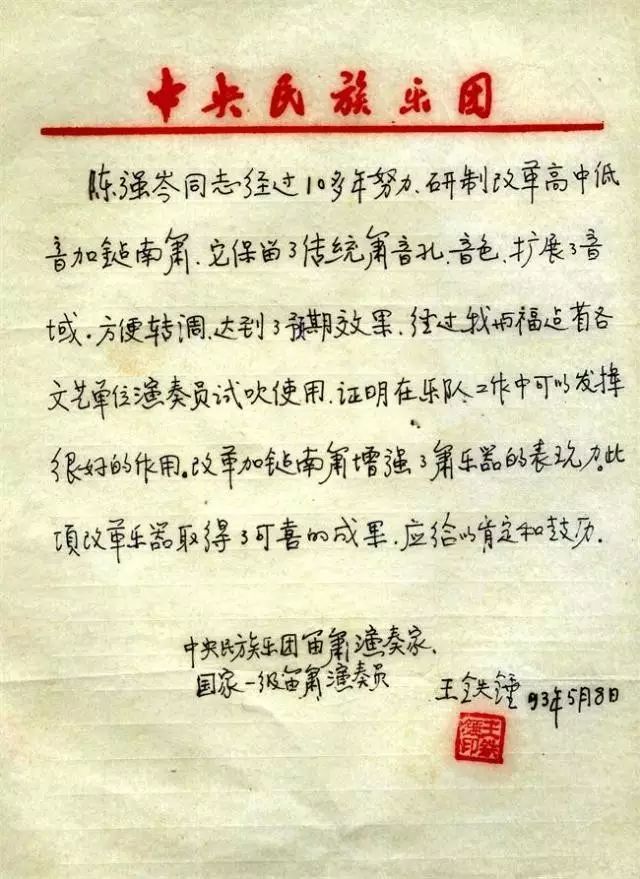 中央民族乐团
陈强岑同志经过10多年努力、研制改革高中低
音加鍵南箫、它保留了传统箫音孔、音色、扩展了音
域。方便转调、达到了预期效果、经过我两福建省各
文艺单位演奏员试吹使用、证明在乐队工作中可以发挥
很好的作用。改革加鍵南箫增强了箫乐器的表现力。此
項改革乐器取得了可喜的成果、应给以肯定和鼓历.
中央民族乐团笛箫演奏家、
国家一级笛箫演奏员
王铁錘 93年5月8日
王铁
錘印